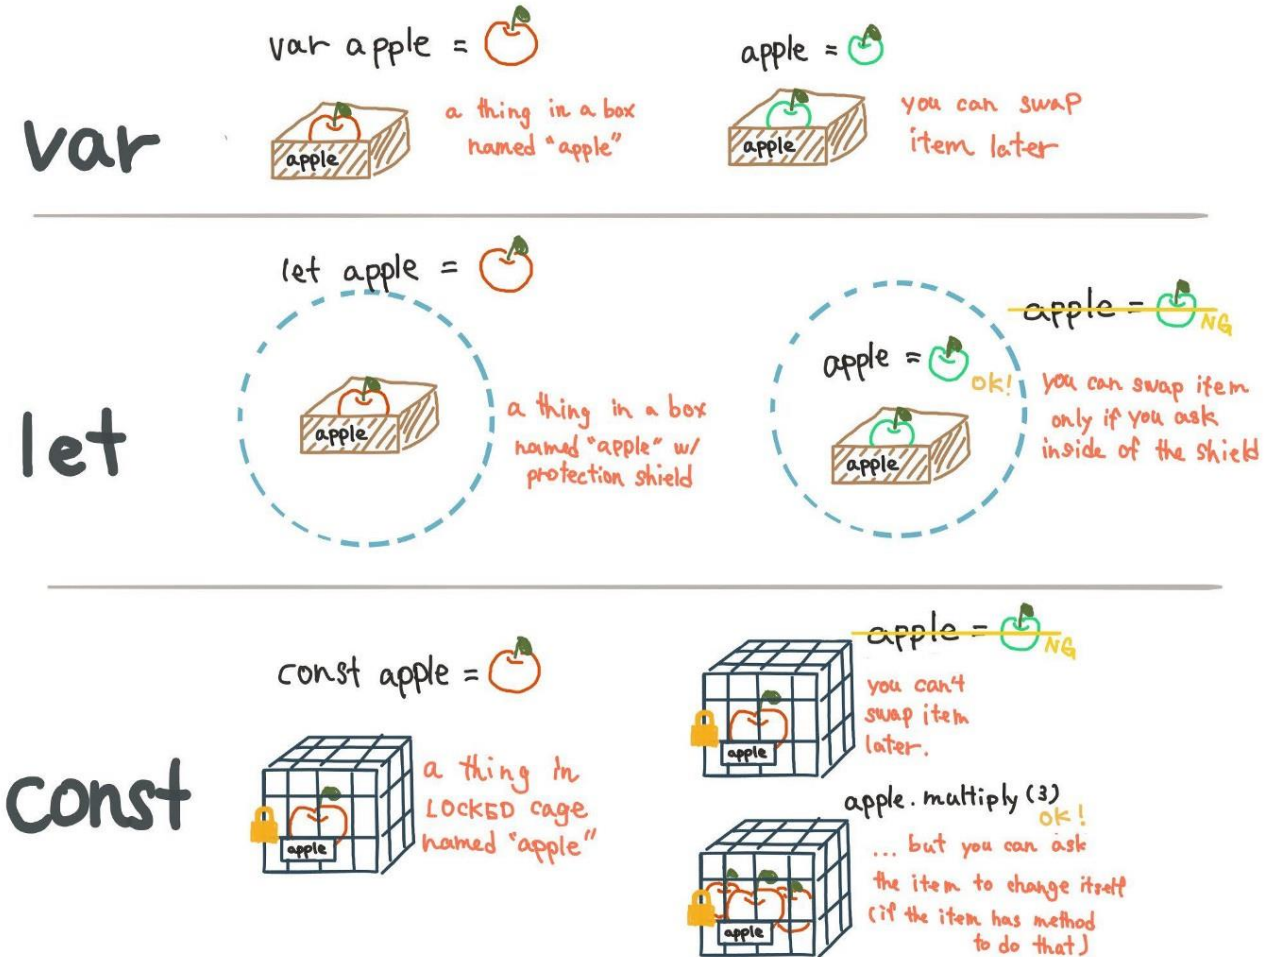 var
var apple =
apple
a thing in a box
named "apple"
apple =
apple
you can swap
item later
let
let apple =
apple
a thing in a box
named "apple" w/
protection shield
apple =
NG
apple =
OK!
apple
you can swap item
only if you ask
inside of the shield
const
const apple =
apple
a thing in
LOCKED cage
named "apple"
apple =
NG
apple
you can't
swap item
later.
apple.multiply(3)
OK!
apple
... but you can ask
the item to change itself
(if the item has method
to do that)